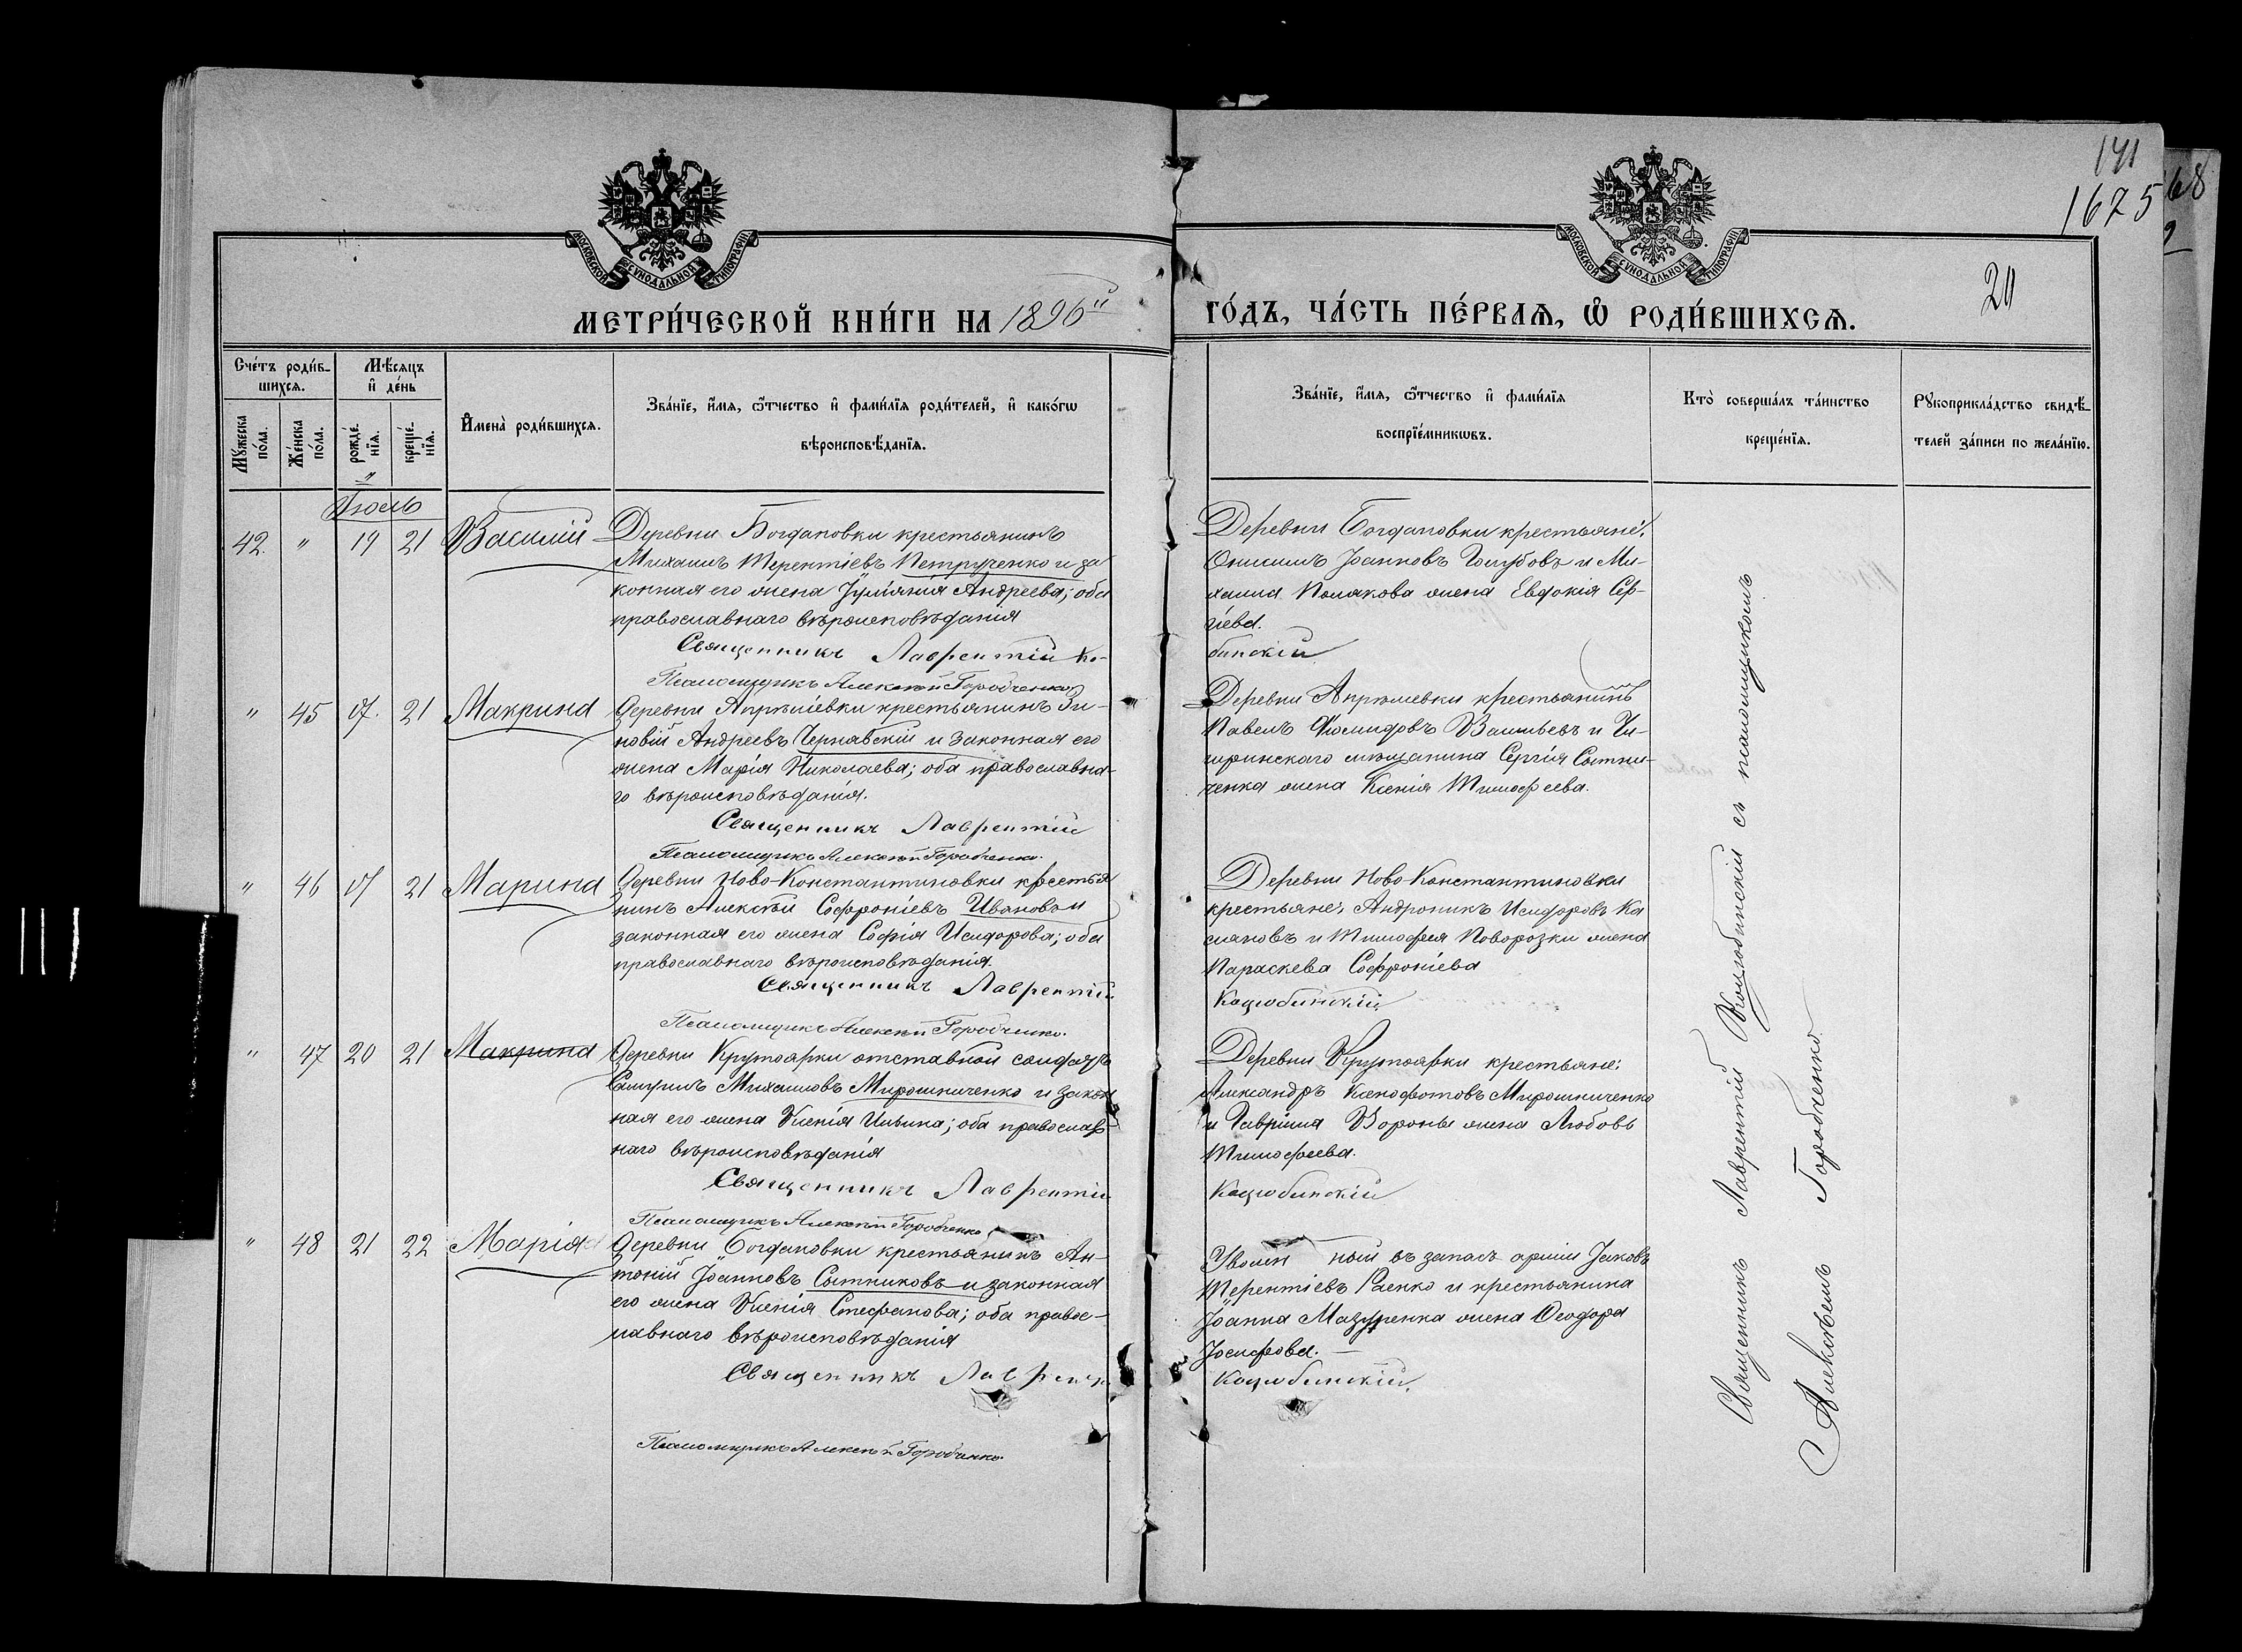 141
1675
68
20
МОСКОВСКОЙ СѴНОДАЛЬНОЙ ТИПОГРАФІИ
МОСКОВСКОЙ СѴНОДАЛЬНОЙ ТИПОГРАФІИ
МЕТРИ́ЧЕСКОЙ КНИ́ГИ НА 1896й
ГО́ДЪ, ЧА́СТЬ ПЕ́РВАѦ, Ѡ РОДИ́ВШИХСѦ.
Сче́тъ роди́в-
шихсѧ.
Мꙋжеска
по́ла.
Же́нска
по́ла.
Мѣ́сѧцъ
и҆ де́нь
рожде́-
нїѧ.
креще́-
нїѧ.
И҆мена̀ роди́вшихсѧ.
Зва́нїе, и҆́мѧ, ѻ҆́тчество и҆ фами́лїѧ роди́телей, и҆ како́гѡ
вѣроисповѣ́данїѧ.
Зва́нїе, и҆́мѧ, ѻ҆́тчество и҆ фами́лїѧ
воспрїе́мникѡвъ.
Кто̀ соверша́лъ та́инство
креще́нїѧ.
Рꙋкоприкла́дство свидѣ́-
телей за́писи по жела́нїю.
Іюль
42. " 19 21 Василій
Деревни Богдановки крестьянинъ
Михаилъ Терентіевъ Петрученко и за
конная его жена Іуліанія Андреева; оба
православнаго вѣроисповѣданія
Священникъ Лаврентій Ко-
Псаломщикъ Алексѣй Городченко
Деревни Богдановки крестьяне:
Онисимъ Іоанновъ Голубовъ и Ми-
хаила Полякова жена Евдокія Сер-
гіева.
бинскій
" 45 21 Макрина
Деревни Апрѣлевки крестьянинъ Зи-
новій Андреевъ Чернявскій и законная его
жена Марія Николаева; оба православна-
го вѣроисповѣданія.
Священникъ Лаврентій
Псаломщикъ Алексѣй Городченко.
Деревни Апрѣлевки крестьянинъ
Павелъ Васильевъ и Чи-
гиринскаго мѣщанина Сергія Сытни-
ченка жена Ксенія Тимофеева.
" 46 21 Марина
Деревни Ново-Константиновки крестья
нинъ Алексѣй Софроніевъ Ивановъ и
законная его жена Софія Исидорова; оба
православнаго вѣроисповѣданія.
Священникъ Лаврентій
Псаломщикъ Алексѣй Городченко.
Деревни Ново-Константиновки
крестьяне: Андроникъ Исидоровъ Ка
сьяновъ и Тимофея Поворозки жена
Параскева Софроніева
Коцюбинскій
" 47 20 21 Макрина
Деревни Крутоярки отставной солдатъ
Самуилъ Михаиловъ Мирошниченко и закон
ная его жена Ксенія Ильина; оба православ-
наго вѣроисповѣданія
Священникъ Лаврентій
Псаломщикъ Алексѣй Городченко
Деревни Крутоярки крестьяне:
Александръ Ксенофонтовъ Мирошниченко
и Гавріила Вороны жена Любовь
Тимофеева.
Коцюбинскій
" 48 21 22 Марія
Деревни Богдановки крестьянинъ Ан-
тоній Іоанновъ Сытниковъ и законная
его жена Ксенія Стефанова; оба правос-
лавнаго вѣроисповѣданія
Священникъ Лаврент
Псаломщикъ Алексѣй Городченко.
Уволен ный въ запасъ арміи Іаковъ
Терентіевъ Раенко и крестьянина
Іоанна Мазуренка жена Ѳеодора
Іосифова.
Коцюбинскій.
Священникъ Лаврентій Коцюбинскій съ псаломщикомъ
Алексѣемъ Городченко